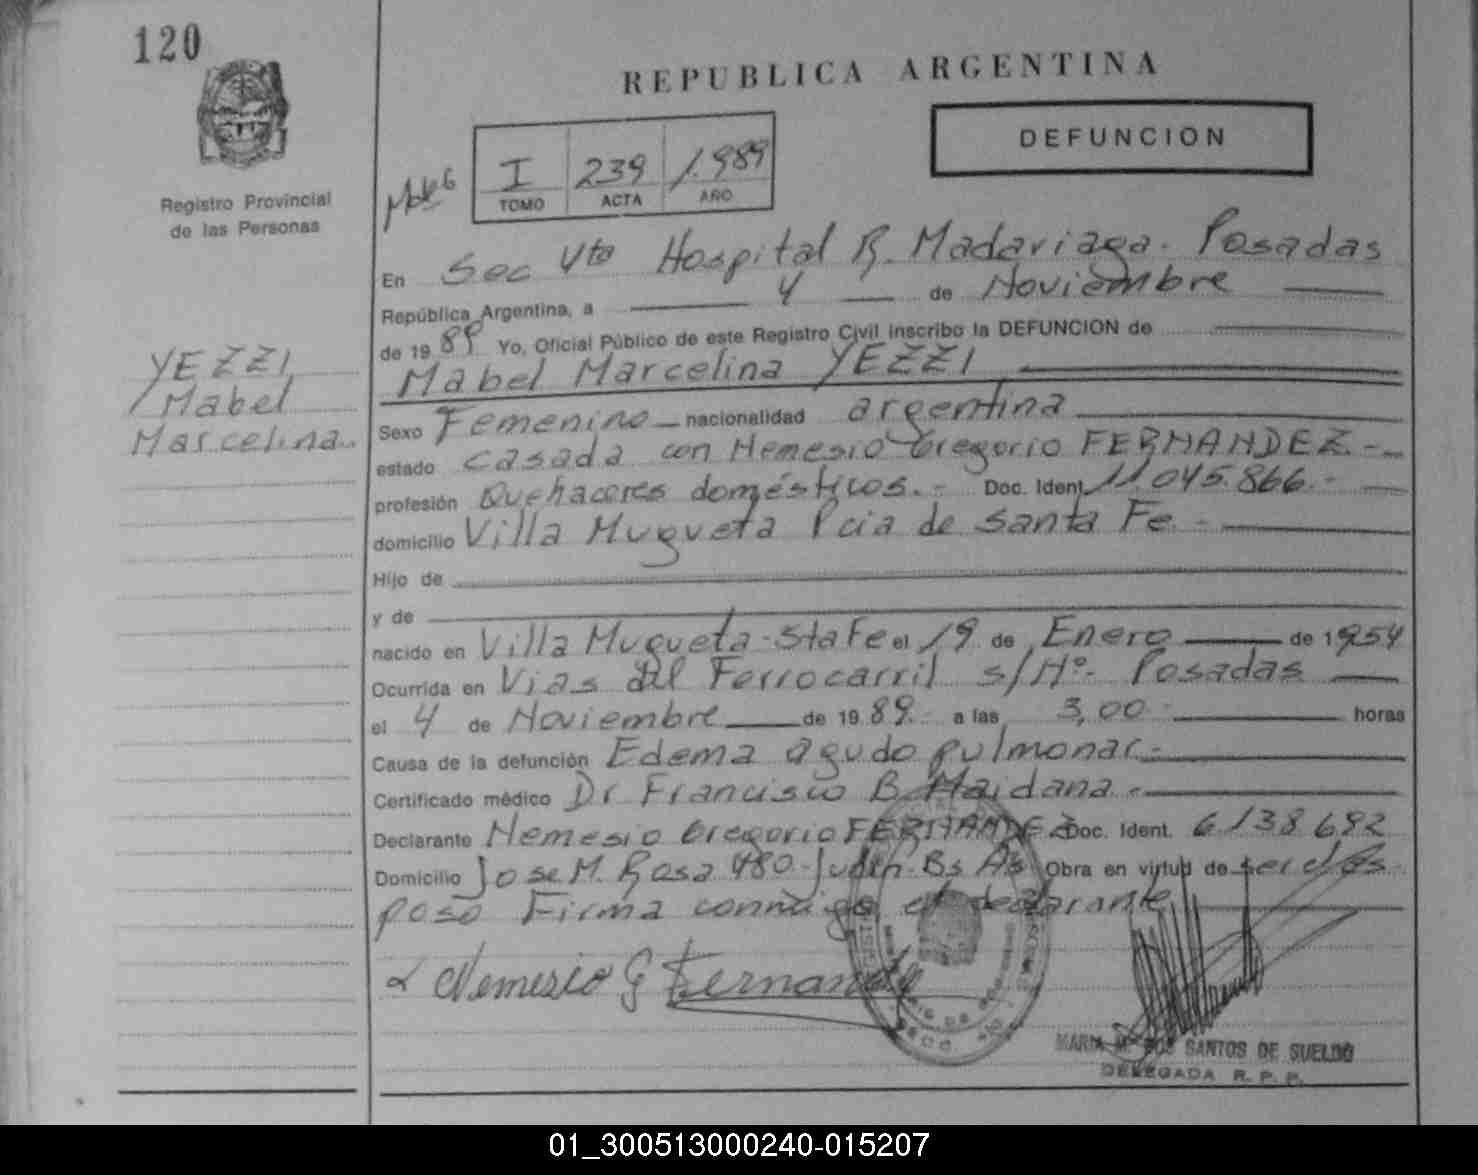 120
REPUBLICA ARGENTINA
DEFUNCION
I 239 1.989
TOMO ACTA AÑO
Registro Provincial
de las Personas
En Sec Vta Hospital R. Madariaga. Posadas
República Argentina, a 4 de Noviembre
de 19 89 Yo, Oficial Público de este Registro Civil inscribo la DEFUNCION de
Mabel Marcelina YEZZI
YEZZI
Mabel
Marcelina.
Sexo Femenino nacionalidad argentina
estado casada con Nemesio Gregorio FERNANDEZ.-
profesión Quehaceres domésticos.- Doc. Ident. 11045.866.-
domicilio Villa Mugueta Pcia de Santa Fe.-
Hijo de
y de
nacido en Villa Mugueta-Sta Fe el 19 de Enero de 1954
Ocurrida en Vias del Ferrocarril s/Nº- Posadas
el 4 de Noviembre de 19 89.- a las 3,00 - horas
Causa de la defunción Edema agudo pulmonar.-
Certificado médico Dr Francisco B Maidana.-
Declarante Nemesio Gregorio FERNANDEZ Doc. Ident. 6138692
Domicilio Jose M. Rosa 480-Junin-Bs As Obra en virtud de ser el es-
poso Firma conmigo el declarante
Nemesio G Fernandez
MARIA M. DOS SANTOS DE SUELDO
DELEGADA R. P. P.
01_300513000240-015207